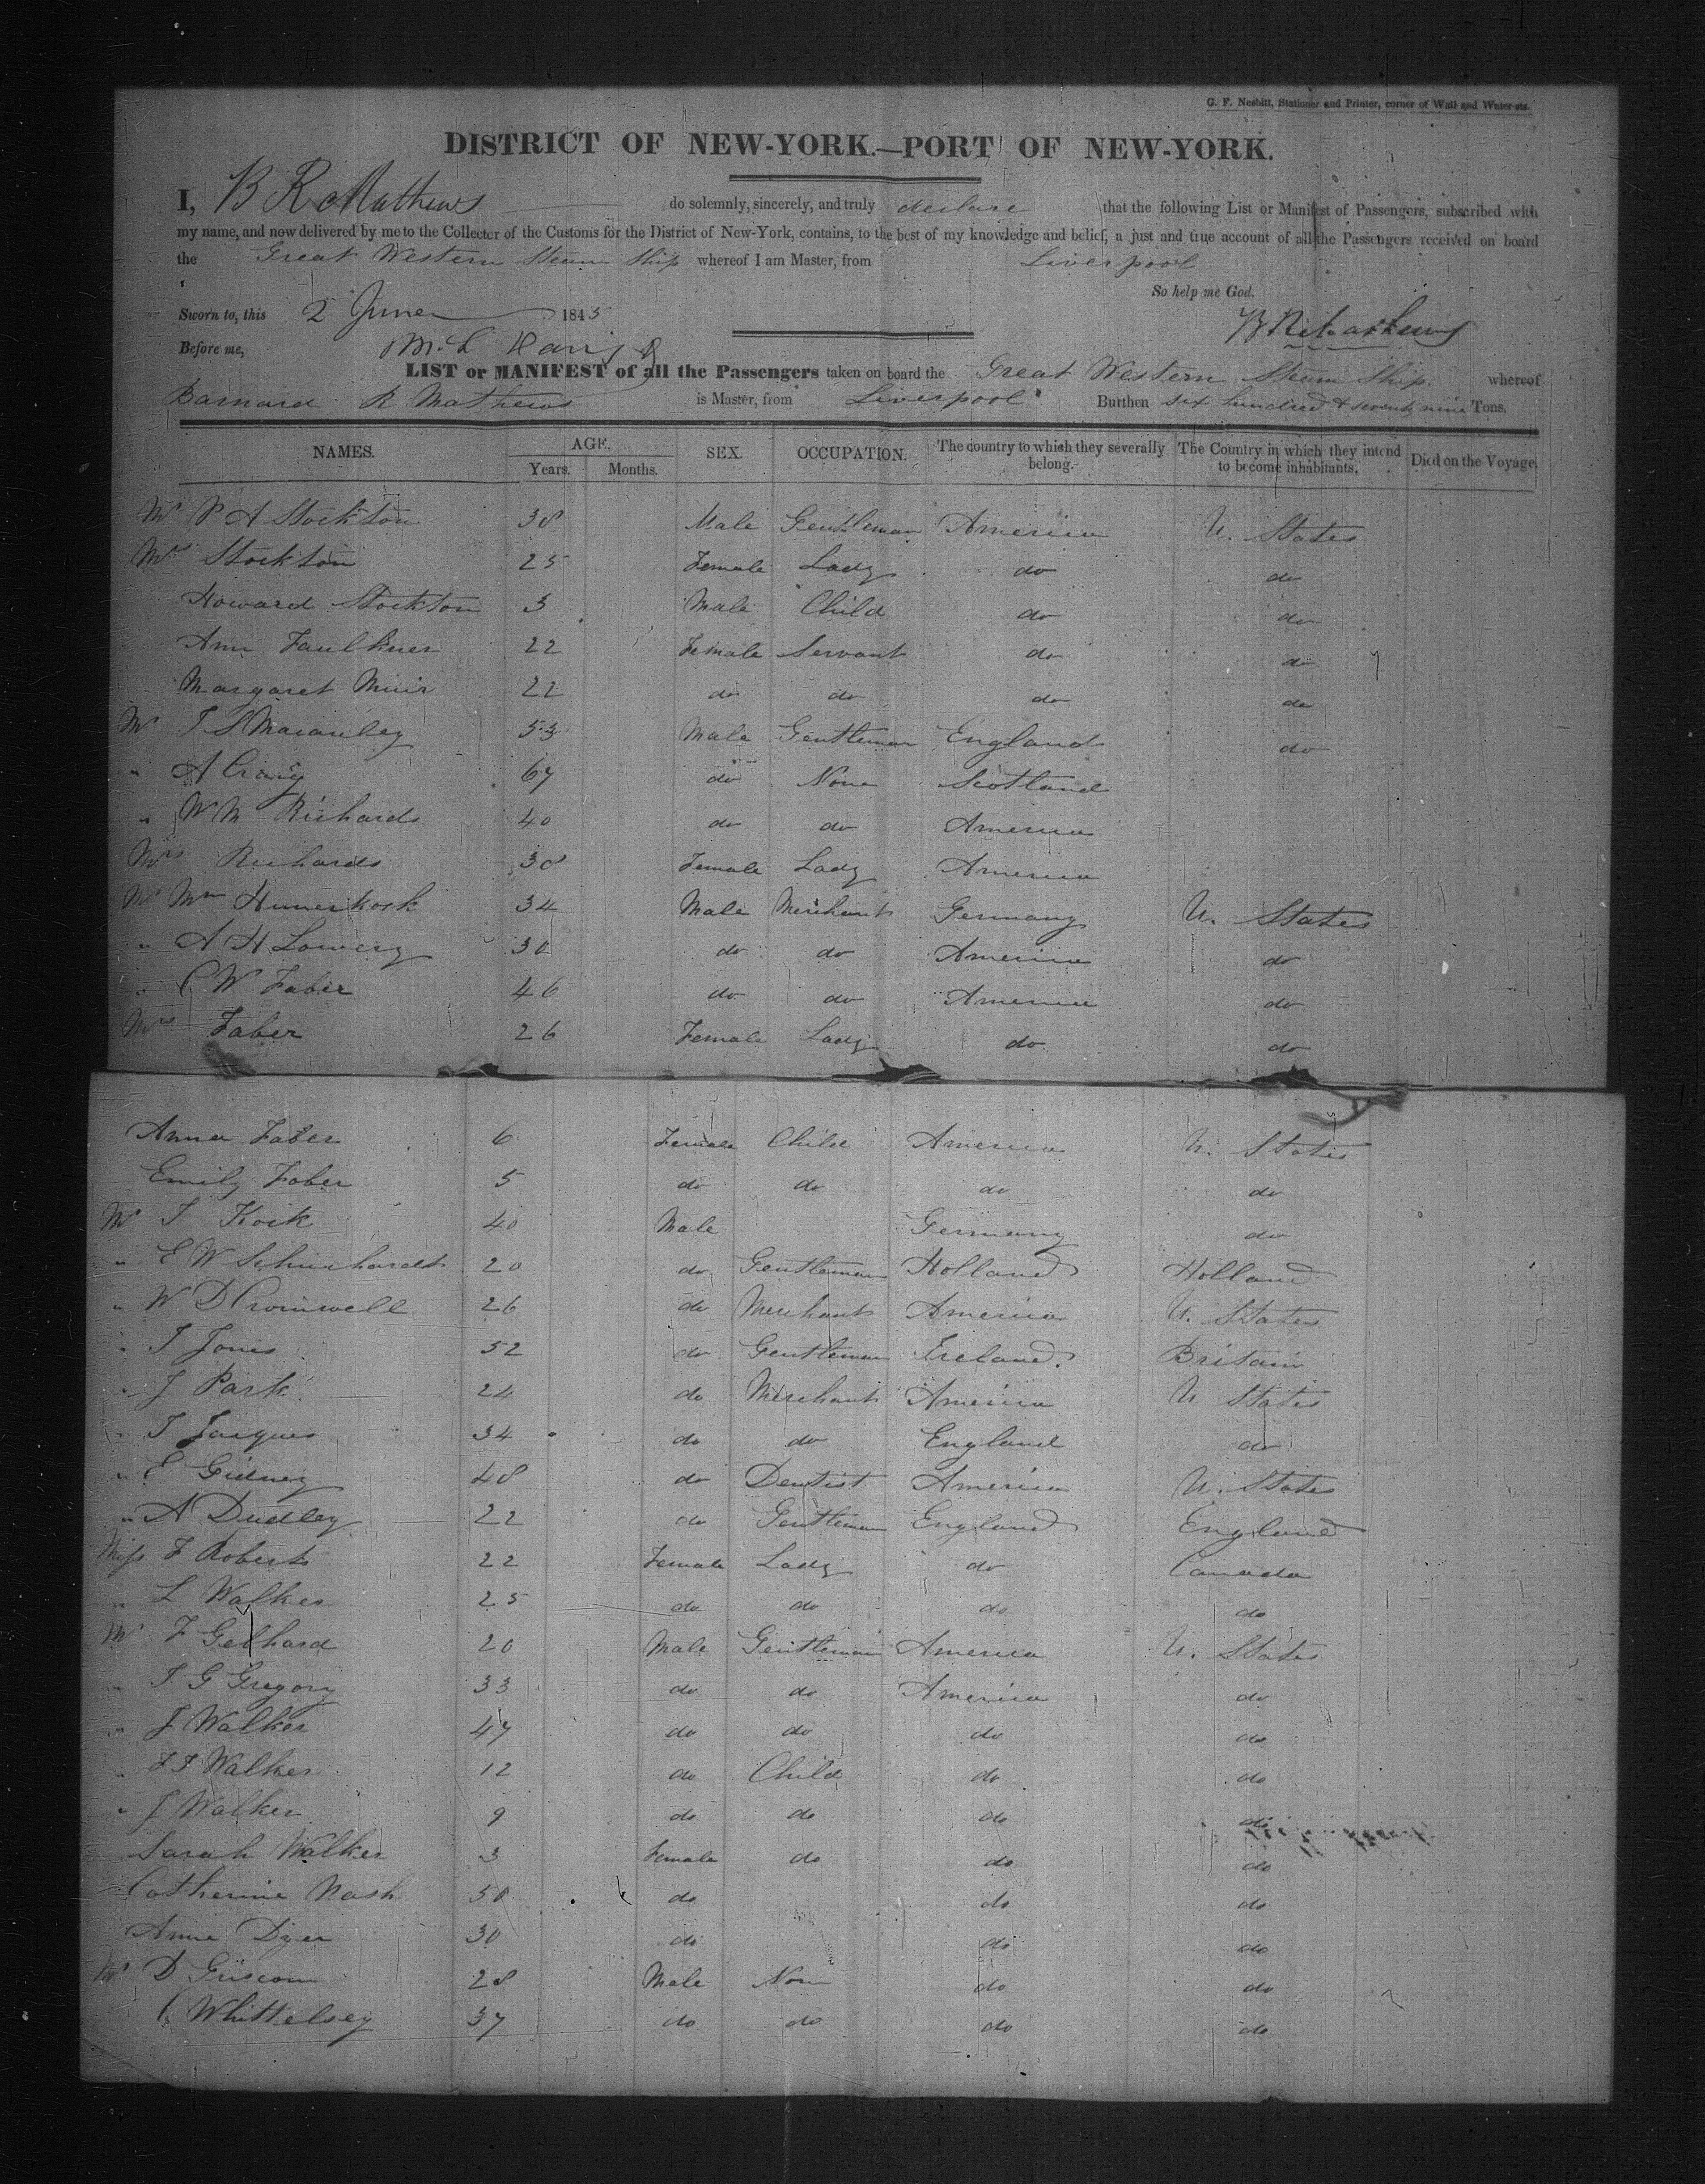 G. F. Nesbitt, Stationer and Printer, corner of Wall and Water-sts.
DISTRICT OF NEW-YORK.—PORT OF NEW-YORK.
I, B R Mathews do solemnly, sincerely, and truly declare that the following List or Manifest of Passengers, subscribed with
my name, and now delivered by me to the Collecter of the Customs for the District of New-York, contains, to the best of my knowledge and belief, a just and true account of all the Passengers received on board
the Great Western Steam Ship whereof I am Master, from Liverpool
So help me God.
Sworn to, this 2 June 1845
B R Mathews
Before me,
LIST or MANIFEST of all the Passengers taken on board the Great Western Steam Ship whereof
Barnard R Mathews is Master, from Liverpool Burthen six hundred & seventy nine Tons.
NAMES. AGE. SEX. OCCUPATION. The country to which they severally belong. The Country in which they intend to become inhabitants. Died on the Voyage.
Years. Months.
Mr P A Stockton 38 Male Gentleman America U. States
Mrs Stockton 25 Female Lady do do
Howard Stockton 3 Male Child do do
Ann Faulkner 22 Female Servant do do
Margaret Muir 22 do do do do
Mr T S Macauley 53 Male Gentleman England do
" A Craig 67 do None Scotland
" W M Richards 40 do do America
Mrs Richards 38 Female Lady America
Mr Wm 34 Male Merchant Germany U. States
" A H Lowery 30 do do America do
" C W Faber 46 do do America do
Mrs Faber 26 Female Lady do do
Anna Faber 6 Female Child America U. States
Emily Faber 5 do do do do
Mr T Kock 40 Male Germany do
" E W Schuchardt 20 do Gentleman Holland Holland
" W D Cromwell 26 do Merchant America U. States
" T Jones 52 do Gentleman Ireland. Britain
" J Park 24 do Merchant America U States
" T Jaques 34 do do England do
" E Gidney 48 do Dentist America U. States
" A Dudley 22 do Gentleman England England
Miss F Roberts 22 Female Lady do Canada
" L Walker 25 do do do do
Mr F Gebhard 20 Male Gentleman America U. States
" T G Gregory 33 do do America do
" J Walker 47 do do do do
" F F Walker 12 do Child do do
" J Walker 9 do do do do
Sarah Walker 3 Female do do do
Catherine Nash 50 do do do
Anne Dyer 30 do do do
Mr D Griscom 28 Male Non do do
C Whittelsey 37 do do do do